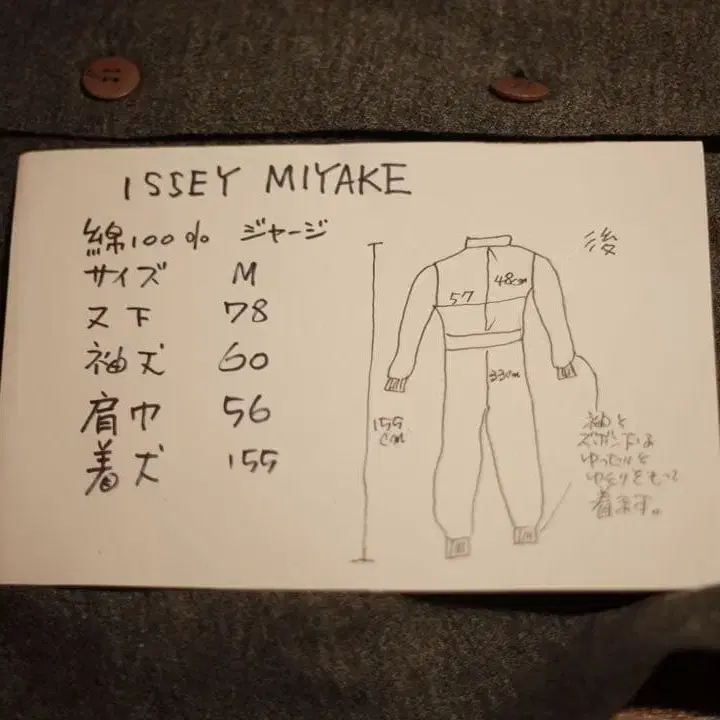 ISSEY MIYAKE
綿100% ジャージ
サイズ M
又下 78
袖丈 60
肩巾 56
着丈 155
後
48cm
57
33cm
155
cm
袖と
ズボン下は
ゆったりと
ゆとりをもって
着ます。